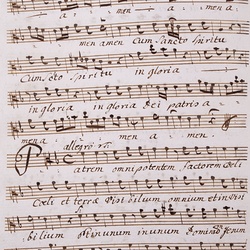 a - men - a - men
men amen Cum sancto spiritu
Cum scto spiritu in gloria
in gloria in gloria dei patris a
men a - men a - men.
allegro
Patrem omnipotentem factorem Celi
Coeli et terrae visibilium omnium et invisi
bilium Et in unum in unum Dominum Jesum